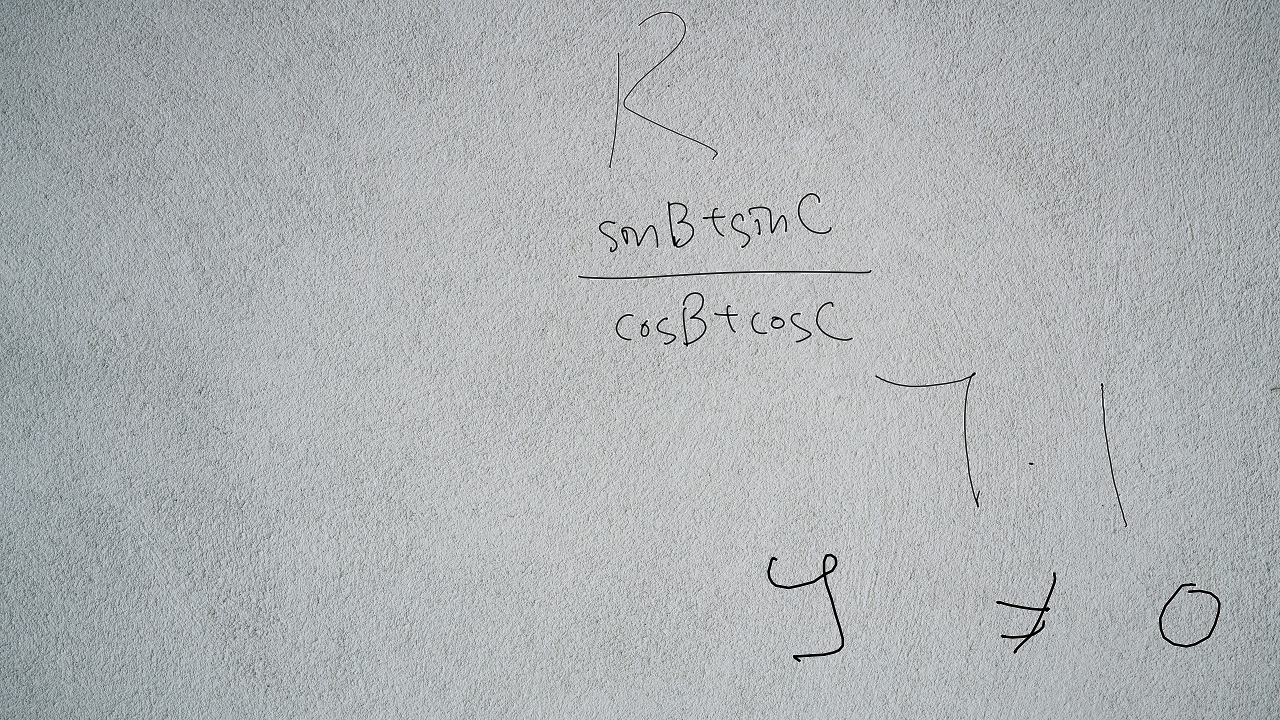 R
\frac{\sin B+\sin C}{\cos B+\cos C}
7.1
y \neq 0